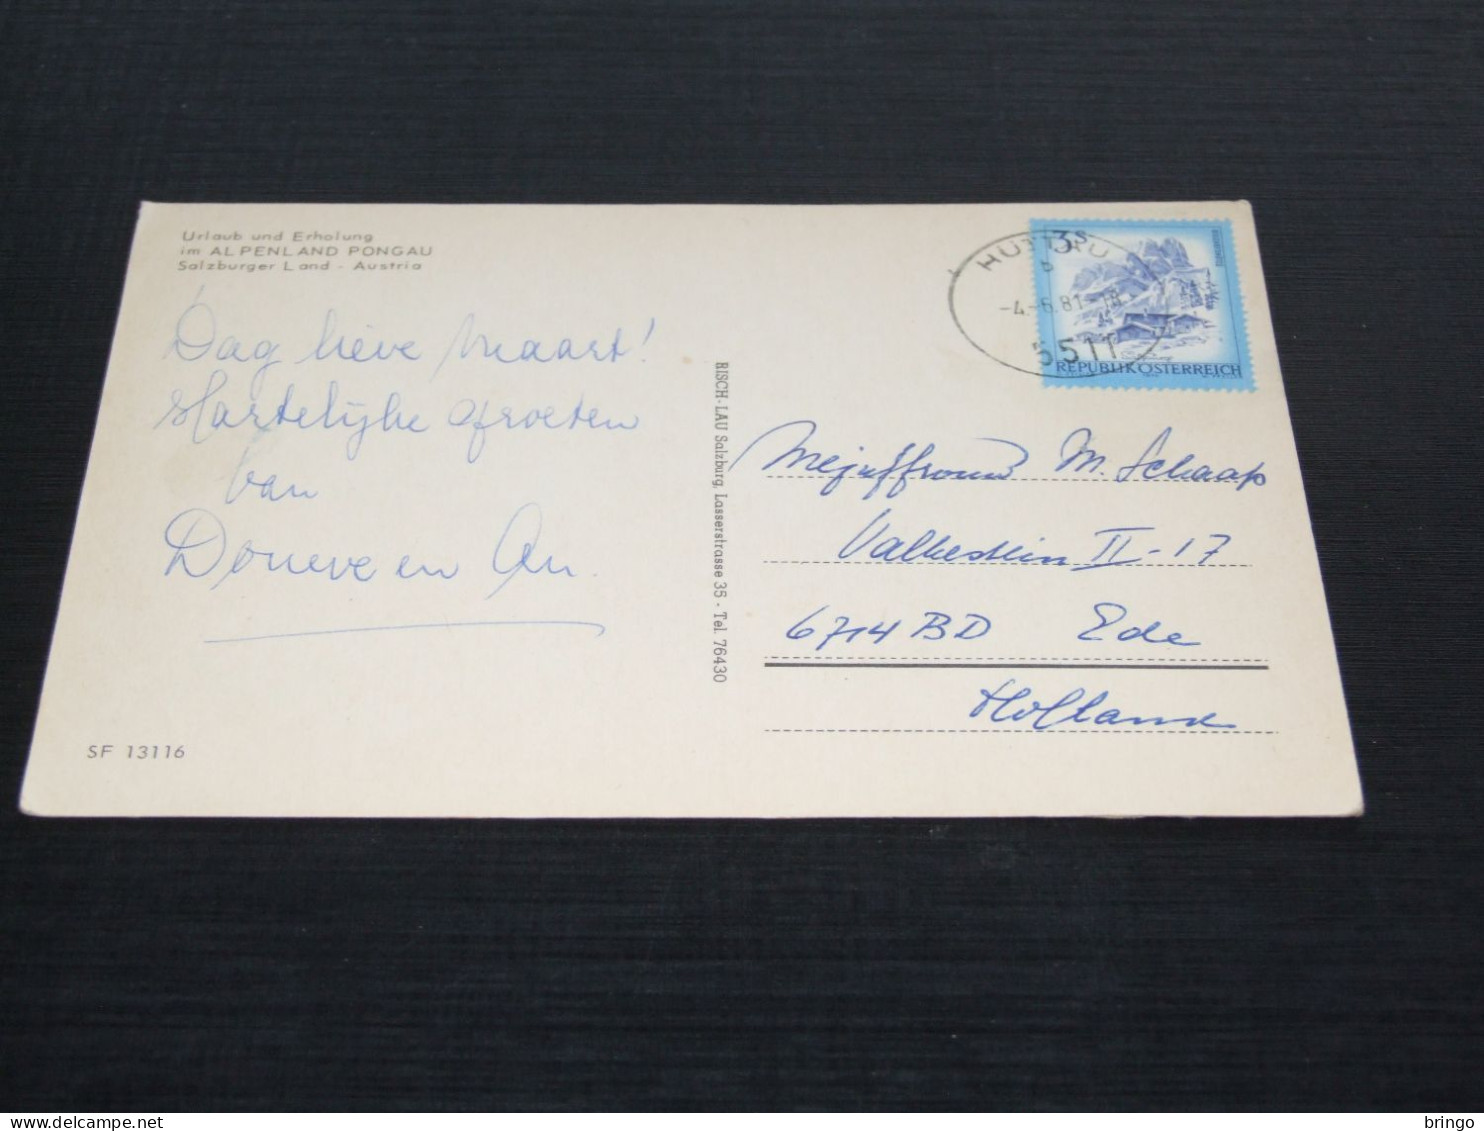 Urlaub und Erholung
im ALPENLAND PONGAU
Salzburger Land - Austria
Dag lieve Maart!
Hartelijke groeten
van
Douwe en An.
SF 13116
RISCH-LAU Salzburg, Lasserstrasse 35 - Tel. 76430
HÜTTAU
b
-4.-6.81-18
5511
3S
REPUBLIK ÖSTERREICH
Mejuffrouw M. Schaap
Valkestein II-17
6714 BD Ede
Holland
delcampe.net
bringo